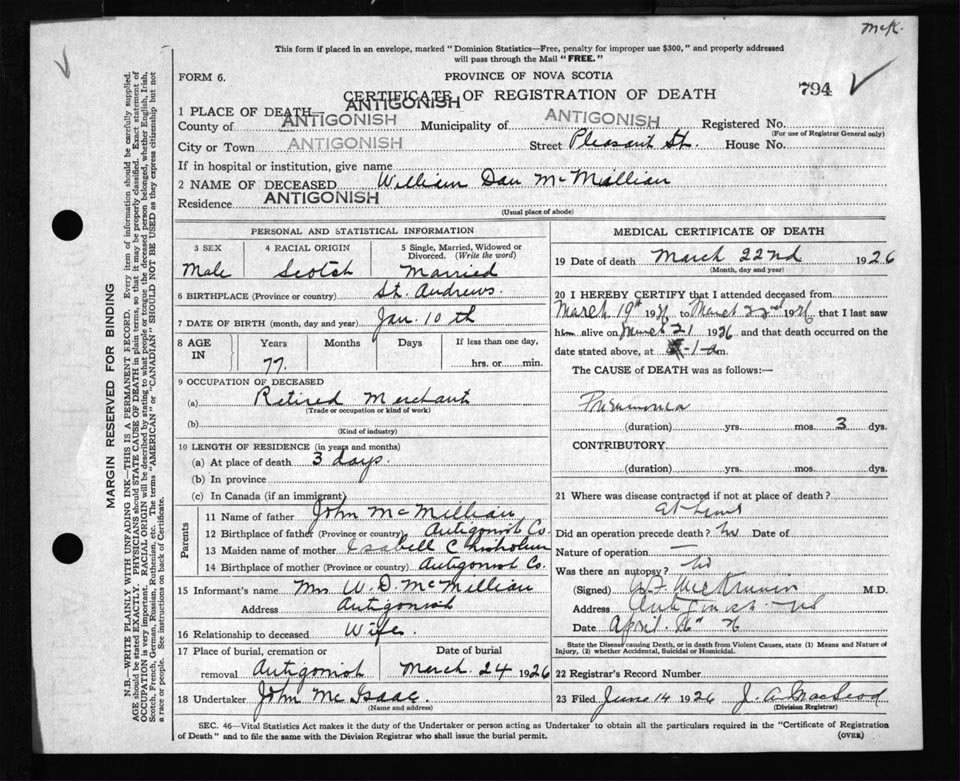 McK.
This form if placed in an envelope, marked "Dominion Statistics—Free, penalty for improper use $300," and properly addressed
will pass through the Mail "FREE."
FORM 6.
PROVINCE OF NOVA SCOTIA
CERTIFICATE OF REGISTRATION OF DEATH
794
ANTIGONISH
1 PLACE OF DEATH
County of ANTIGONISH Municipality of ANTIGONISH Registered No.
(For use of Registrar General only)
City or Town ANTIGONISH Street Pleasant St. House No.
If in hospital or institution, give name
2 NAME OF DECEASED William Dan McMillian
Residence ANTIGONISH
(Usual place of abode)
PERSONAL AND STATISTICAL INFORMATION
3 SEX 4 RACIAL ORIGIN 5 Single, Married, Widowed or Divorced. (Write the word)
Male Scotch Married
6 BIRTHPLACE (Province or country) St. Andrews.
7 DATE OF BIRTH (month, day and year) Jan. 10th
8 AGE IN Years Months Days If less than one day,
77. hrs. or min.
9 OCCUPATION OF DECEASED
(a) Retired Merchant
(Trade or occupation or kind of work)
(b)
(Kind of industry)
10 LENGTH OF RESIDENCE (in years and months)
(a) At place of death 3 days.
(b) In province
(c) In Canada (if an immigrant)
Parents
11 Name of father John McMillian
12 Birthplace of father (Province or country) Antigonish Co.
13 Maiden name of mother Isabell Chisholm
14 Birthplace of mother (Province or country) Antigonish Co.
15 Informant's name Mrs W. D. McMillian
Address Antigonish
16 Relationship to deceased Wife.
17 Place of burial, cremation or Date of burial
removal Antigonish March 24 1926
18 Undertaker John McIsaac.
(Name and address)
MEDICAL CERTIFICATE OF DEATH
19 Date of death March 22nd 1926
(Month, day and year)
20 I HEREBY CERTIFY that I attended deceased from
March 19th 1926 to March 22nd 1926, that I last saw
him alive on March 21 1926, and that death occurred on the
date stated above, at 1 a m.
The CAUSE of DEATH was as follows:—
Pneumonia
(duration) yrs. mos. 3 dys.
CONTRIBUTORY
(duration) yrs. mos. dys.
21 Where was disease contracted if not at place of death?
at home
Did an operation precede death? No Date of
Nature of operation —
Was there an autopsy? No
(Signed) M.D.
Address Antigonish NS
Date April 26
State the Disease causing Death, or in death from Violent Causes, state (1) Means and Nature of
Injury, (2) whether Accidental, Suicidal or Homicidal.
22 Registrar's Record Number
23 Filed June 14 1926 J. A. MacLeod
(Division Registrar)
SEC. 46—Vital Statistics Act makes it the duty of the Undertaker or person acting as Undertaker to obtain all the particulars required in the "Certificate of Registration
of Death" and to file the same with the Division Registrar who shall issue the burial permit. (OVER)
MARGIN RESERVED FOR BINDING
N.B.—WRITE PLAINLY WITH UNFADING INK—THIS IS A PERMANENT RECORD. Every item of information should be carefully supplied.
AGE should be stated EXACTLY. PHYSICIANS should STATE CAUSE OF DEATH in plain terms, so that it may be properly classified. Exact statement of
OCCUPATION is very important. RACIAL ORIGIN will be described by stating to what people or tongue the deceased person belonged, whether English, Irish,
Scotch, French, German, Russian, Ruthenian, etc. The terms "AMERICAN" or "CANADIAN" SHOULD NOT BE USED as they express citizenship but not
a race or people. See instructions on back of Certificate.